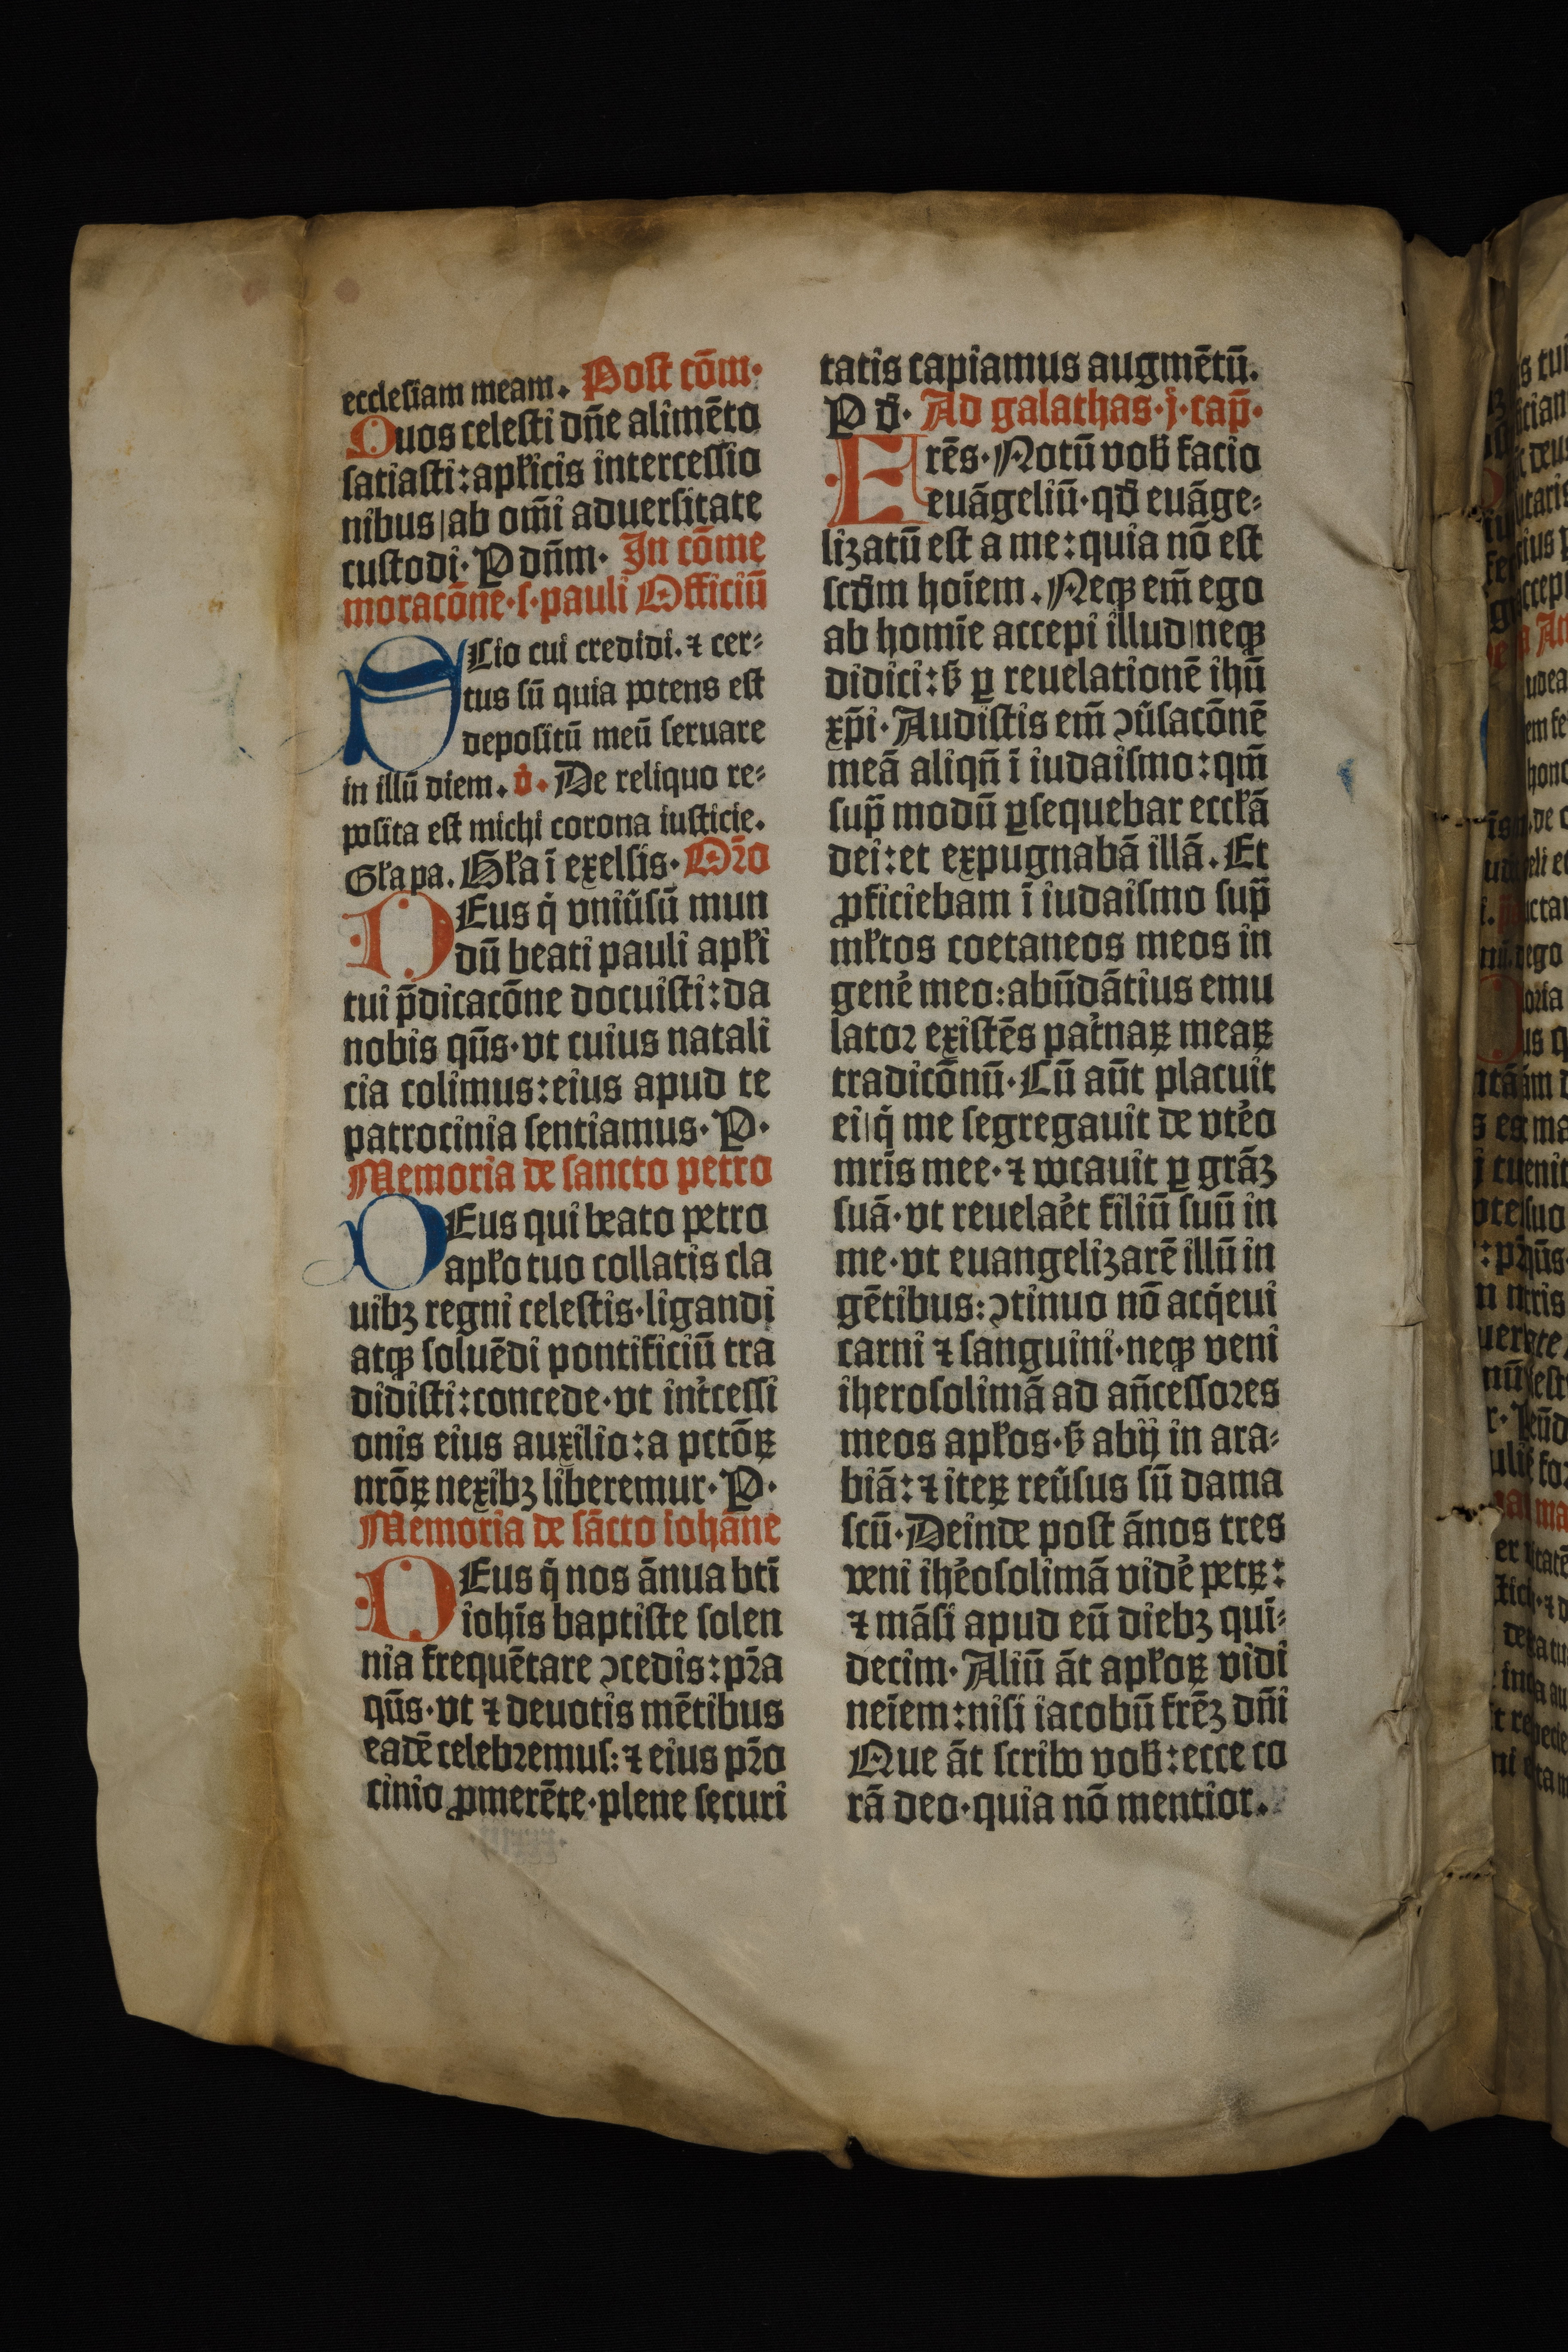 ecclesiam meam. Post cōm·
Quos celesti dn̄e alimēto
satiasti:apl'icis intercessio
nibus|ab om̄i aduersitate
custodi·P dn̄m· In cōme
moracōne·s·pauli Officiū
SCio cui credidi.⁊ cer⸗
tus sū quia potens est
depositū meū seruare
in illū diem. v̇· De reliquo re⸗
posita est michi corona iusticie.
Gl'a pa. Gl'a ī exelsis. Orō
DEus q̇ vniūsū mun
dū beati pauli apl'i
tui p̄dicacōne docuisti:da
nobis qūs·vt cuius natali
cia colimus:eius apud te
patrocinia sentiamus·P·
Memoria de sancto petro
DEus qui beato petro
apl'o tuo collatis cla
uibꝫ regni celestis·ligandi
atqꝫ soluēdi pontificiū tra
didisti:concede·vt int̓cessi
onis eius auxilio:a pctōꝝ
nrōꝝ nexibꝫ liberemur·P·
Memoria de sācto iohāne
DEus q̇ nos ānua btī
ioh̄is baptiste solen
nia frequētare ꝯcedis:pr̄a
qūs·vt ⁊ deuotis mētibus
eadē celebremus:⁊ eius pr̄o
cinio ꝓmerēte·plene securi
tatis capiamus augmētū.
P d̄· Ad galathas·j·cap̄·
FRēs·Notū vob̄ facio
euāgeliū·qd̄ euāge⸗
lizatū est a me:quia nō est
scd̄m hoīem. Neqꝫ em̄ ego
ab homīe accepi illud|neqꝫ
didici:s̄ ꝑ reuelationē ihū
xp̄i·Audistis em̄ ꝯūsacōnē
meā aliqn̄ ī iudaismo:qm̄
sup̄ modū ꝑsequebar eccl'ā
dei:et expugnabā illā. Et
ꝓficiebam ī iudaismo sup̄
ml'tos coetaneos meos in
gen̓e meo:abūdātius emu
lator existēs pat̓naꝝ meaꝝ
tradicōnū·Cū aūt placuit
ei|q̇ me segregauit de vt̓eo
mr̄is mee·⁊ vocauit ꝑ grāꝫ
suā·vt reuela̓et filiū suū in
me·vt euangelizarē illū in
gētibus:ꝯtinuo nō acq̇eui
carni ⁊ sanguini·neqꝫ veni
iherosolimā ad an̄cessores
meos apl'os·s̄ abij in ara⸗
biā:⁊ iteꝝ reūsus sū dama
scū·Deinde post ānos tres
veni ih̓eosolimā vid̓e petꝝ:
⁊ māsi apud eū diebꝫ qui⸗
decim·Aliū āt apl'oꝝ vidi
neīem:nisi iacobū frēꝫ dn̄i
Que āt scribo vob̄:ecce co
rā deo·quia nō mentior.